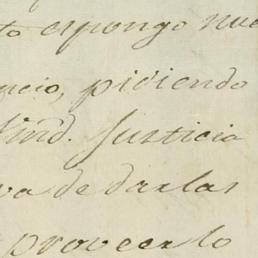 to expongo nue
ncio, pidiendo
Justicia
va de darlas
proveerlo